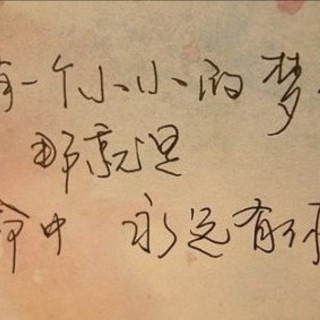 有一个小小的梦
那就是
命中 永远有你